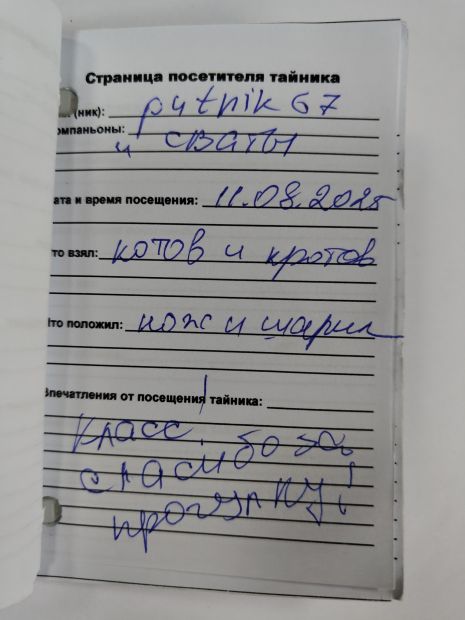 Страница посетителя тайника
(ник): putnik 67
омпаньоны: и сваты
ата и время посещения: 11.08.2025
то взял: котов и кротов
Что положил: нож и шарик
Впечатления от посещения тайника:
Класс!
спасибо за
прогулку!